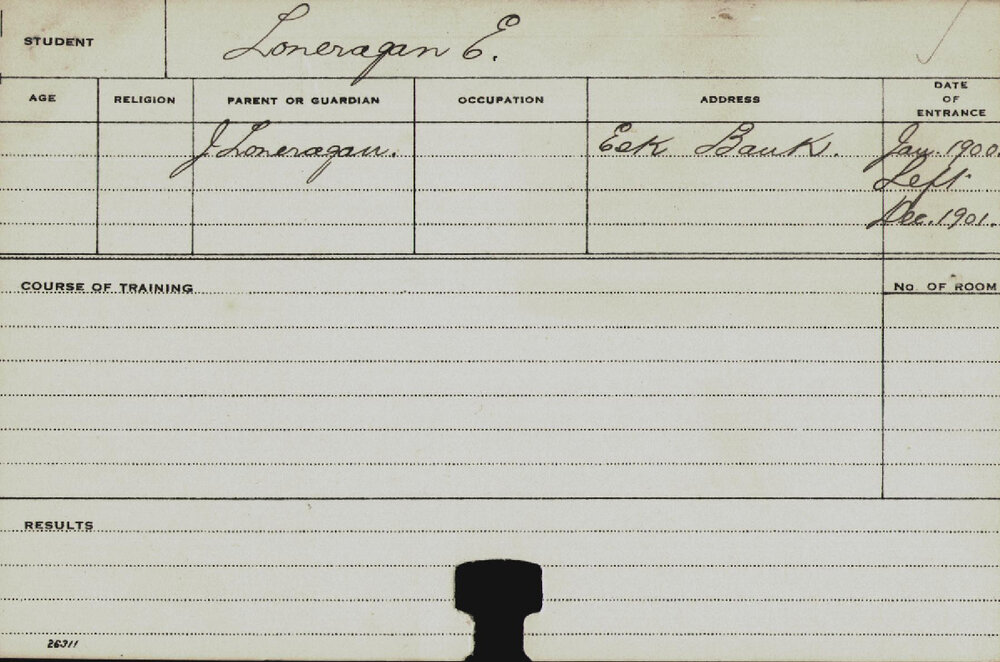 STUDENT Loneragan E.
AGE RELIGION PARENT OR GUARDIAN OCCUPATION ADDRESS DATE OF ENTRANCE
J Loneragan. Esk Bank. Jan. 1900.
Left
Dec. 1901.
COURSE OF TRAINING No. OF ROOM
RESULTS
26311